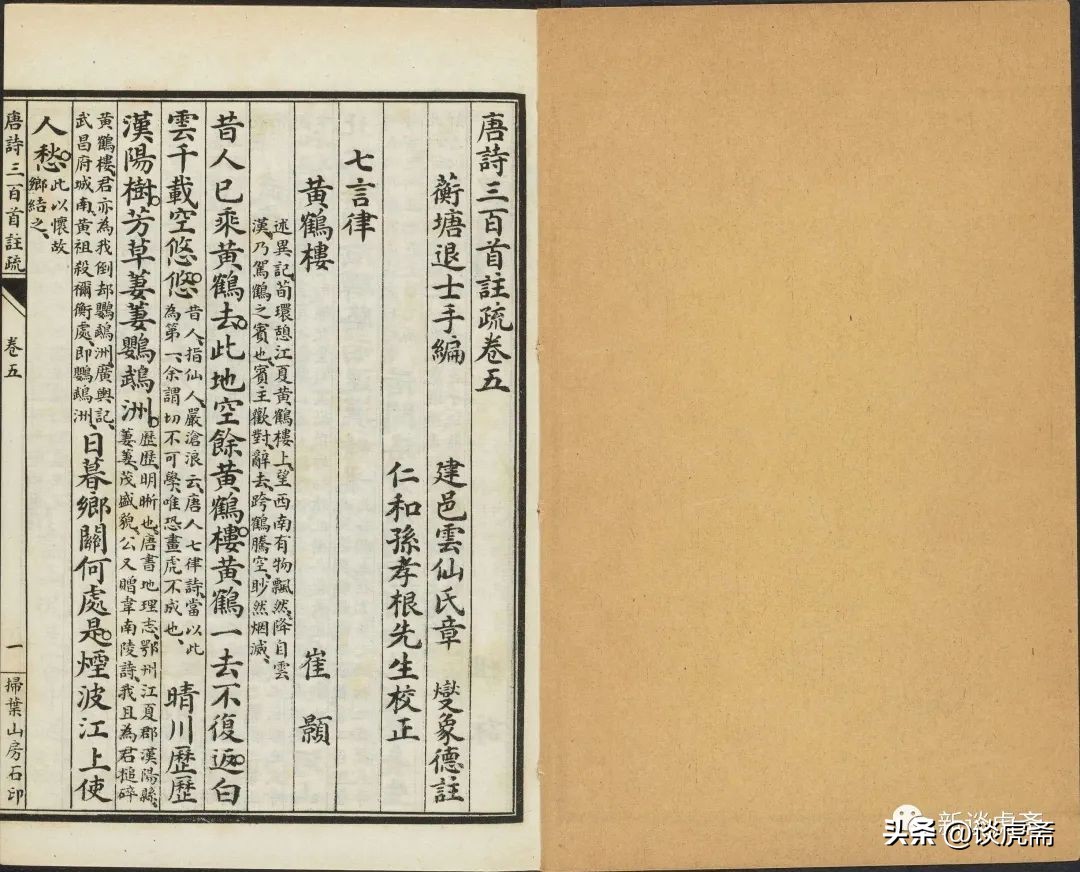 唐詩三百首註疏卷五
蘅塘退士手編　建邑雲仙氏章　燮象德註
仁和孫孝根先生校正
七言律
黃鶴樓　崔　顥
述異記、荀環憩江夏黃鶴樓上、望西南有物飄然、降自雲
漢、乃駕鶴之賓也、賓主歡對、辭去、跨鶴騰空、眇然烟滅、
昔人已乘黃鶴去。此地空餘黃鶴樓。黃鶴一去不復返。白
雲千載空悠悠。
昔人、指仙人、嚴滄浪云、唐人七律詩、當以此
為第一、余謂切不可學、唯恐畫虎不成也、
晴川歷歷
漢陽樹。芳草萋萋鸚鵡洲。
歷歷、明晰也、唐書地理志、鄂州江夏郡漢陽縣、
萋萋、茂盛貌、公又贈韋南陵詩、我且為君槌碎
黃鶴樓、君亦為我倒却鸚鵡洲、廣輿記、
武昌府城南、黃祖殺禰衡處、即鸚鵡洲、
日暮鄉關何處是。煙波江上使
人愁。
此以懷故
鄉結之、
唐詩三百首註疏　卷五　一　掃葉山房石印
新谈虎斋
头条 @谈虎斋